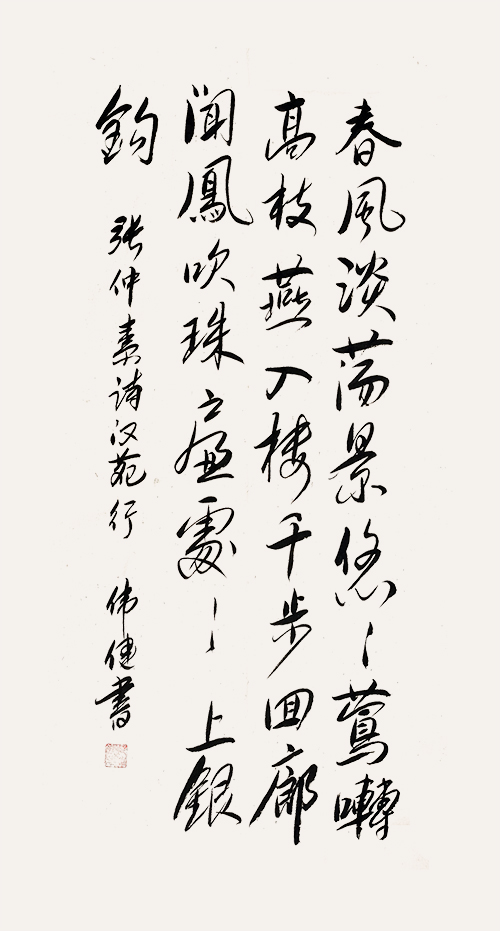 春風淡荡景悠〻鶯囀
高枝燕入楼千步回廊
闻鳳吹珠廉處〻上銀
鈎 张仲素诗汉苑行 伟健書